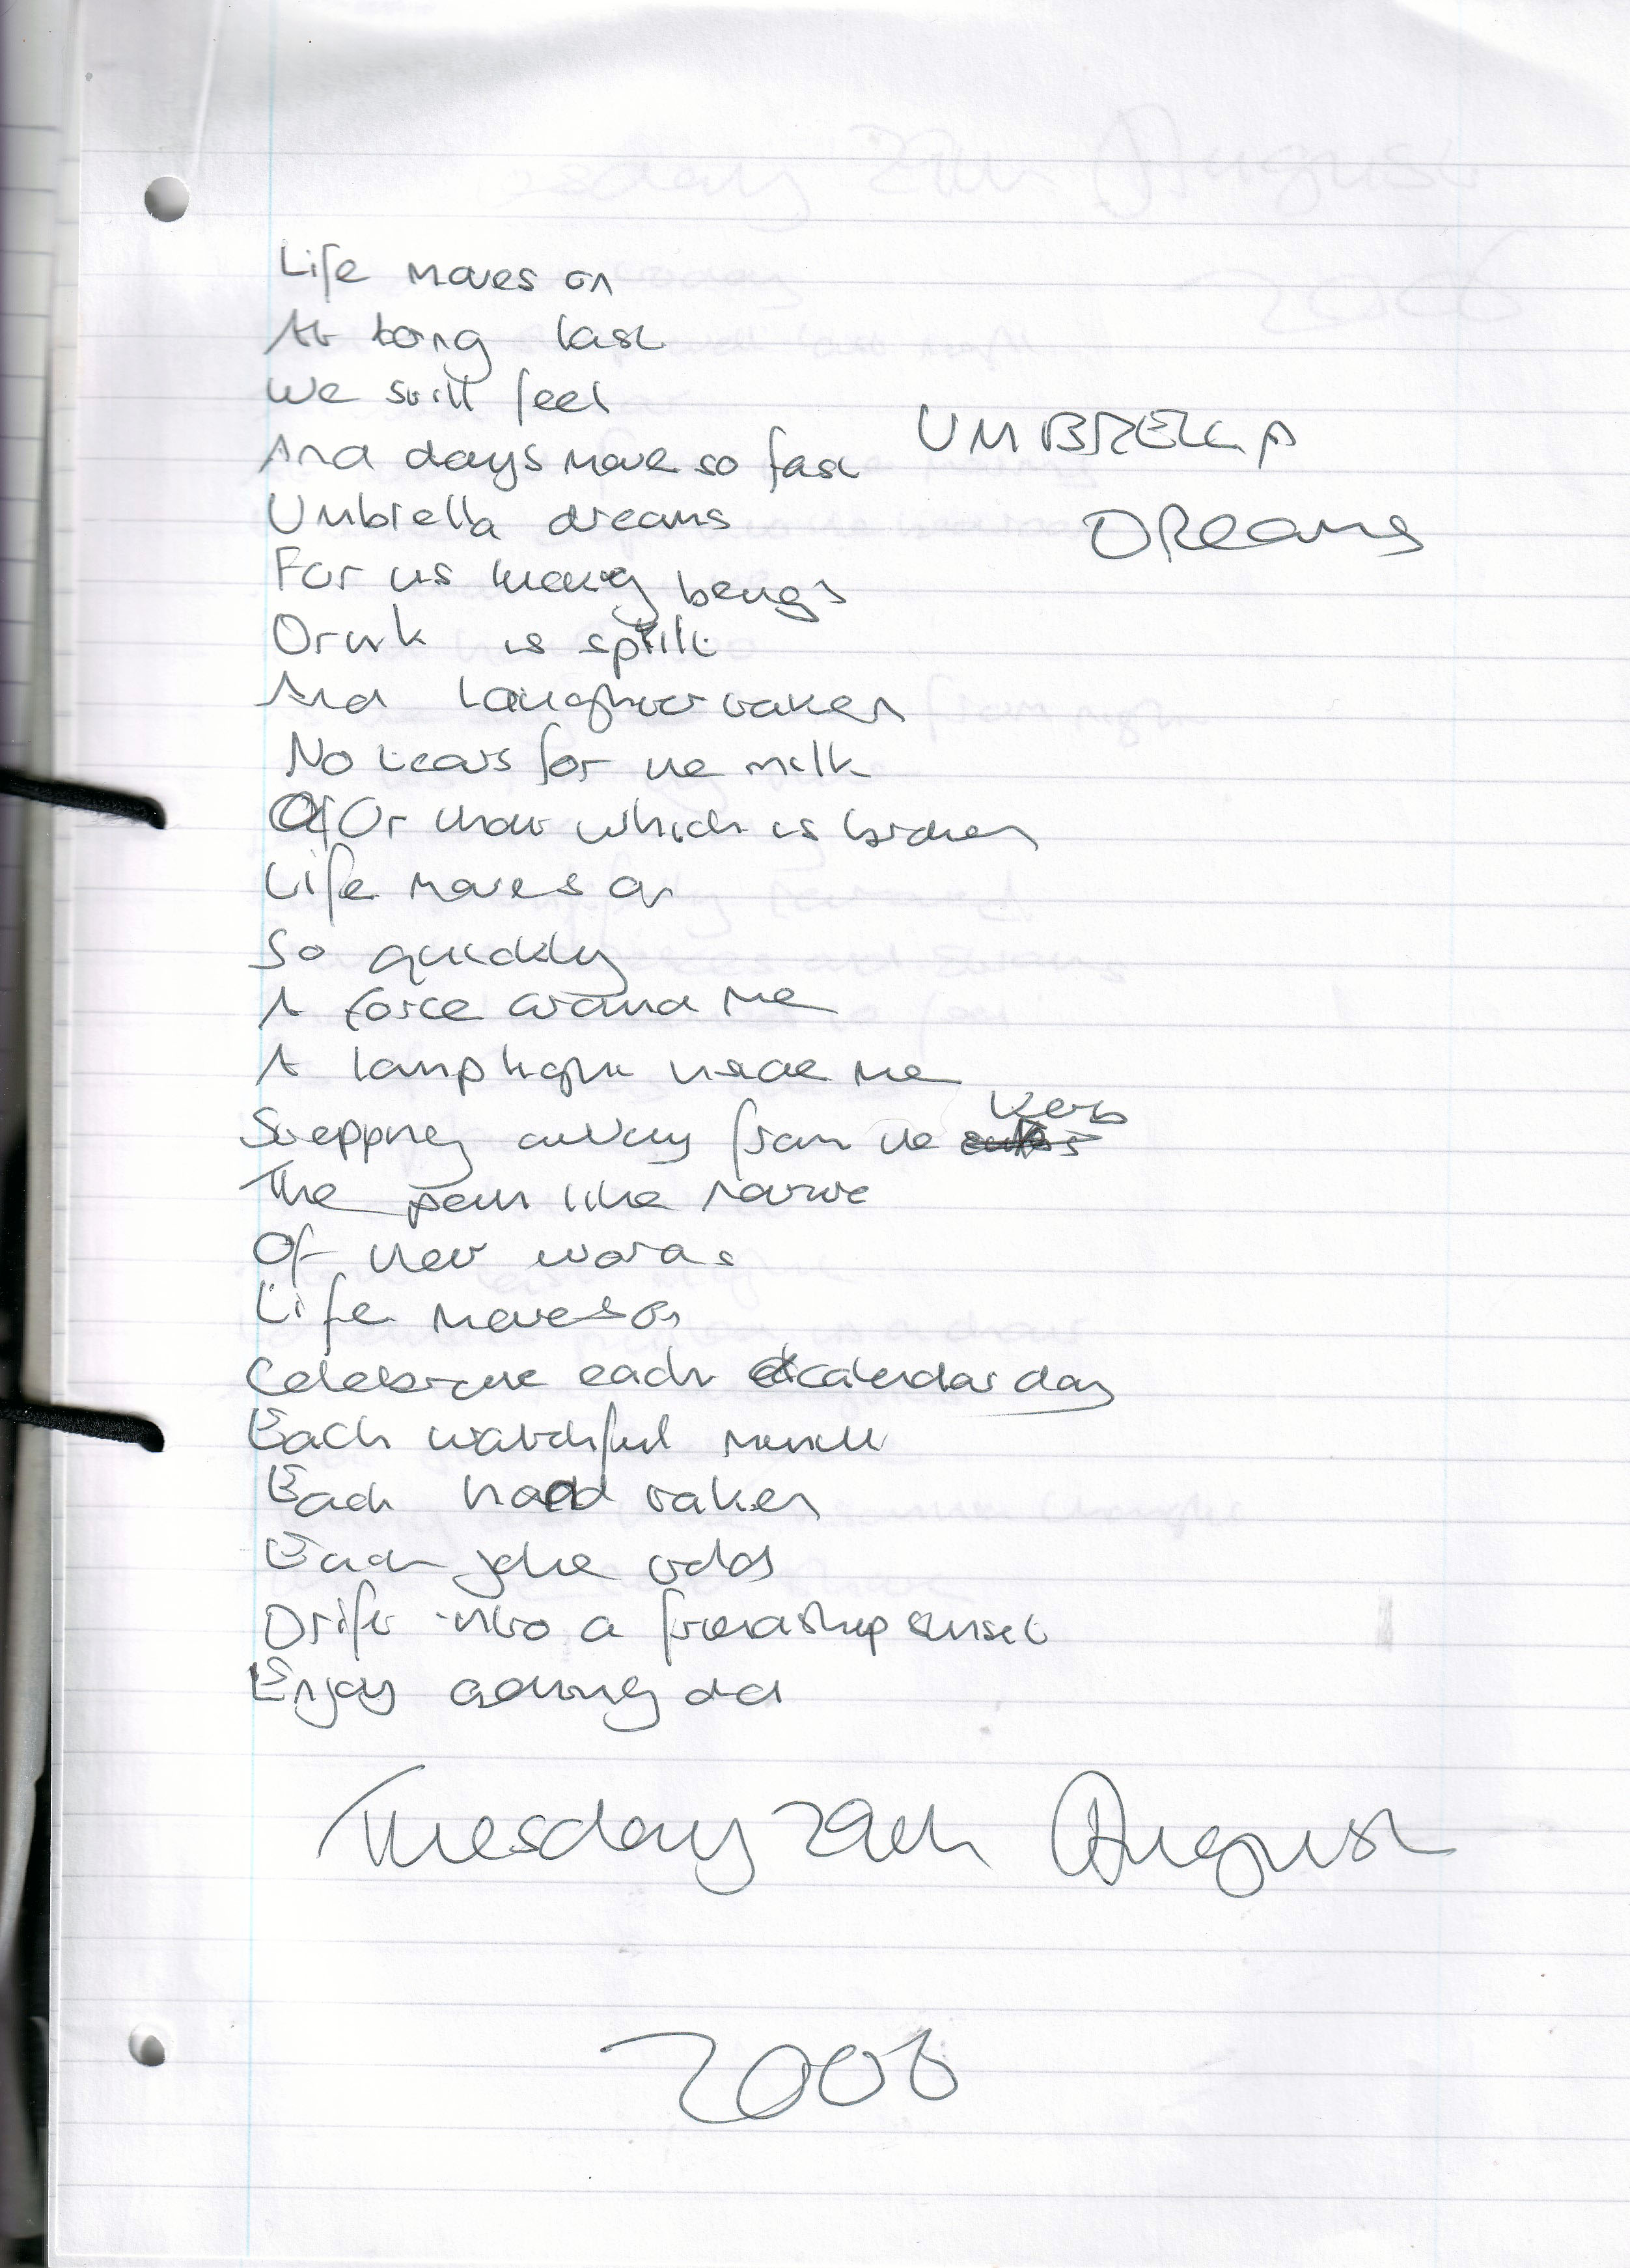 Life moves on
At long last
We still feel
And days move so fast
UMBRELLA
DREAMS
Umbrella dreams
For us living beings
Drink is spilt
And laughter taken
No tears for the milk
Or that which is broken
Life moves on
So quickly
A force around me
A lamp light inside me
Stepping away from the kerb
The pen like
Of new words
Life moves on
Celebrate each calendar day
Each watchful minute
Each hand taken
Each joke told
Drift into a friendship sunset
Enjoy getting old
Tuesday 29th August
2006